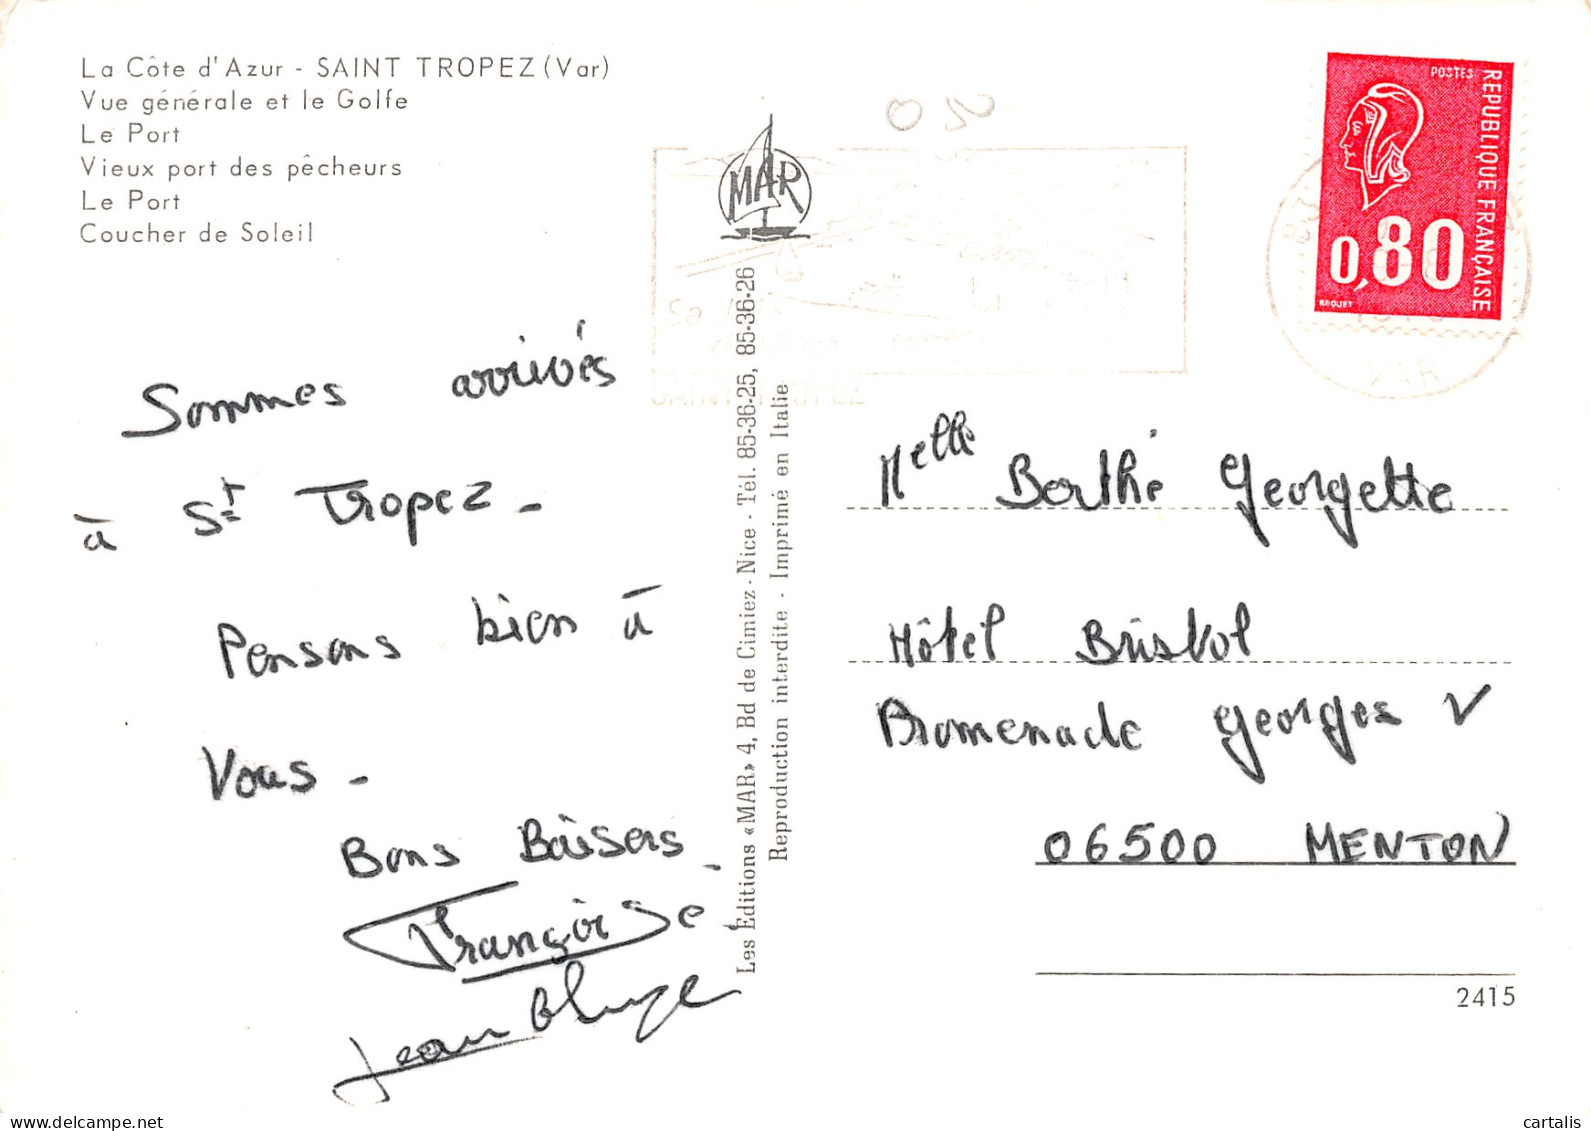 La Côte d'Azur - SAINT TROPEZ (Var)
Vue générale et le Golfe
Le Port
Vieux port des pêcheurs
Le Port
Coucher de Soleil
MAR
POSTES
REPUBLIQUE FRANÇAISE
0,80
BEQUET
VAR
Sommes arrivés
à St Tropez -
Pensons bien à
Vous -
Bons Baisers
Françoise
Jean
Les Éditions «MAR» 4, Bd de Cimiez - Nice - Tél. 85-36-25, 85-36-26
Reproduction interdite - Imprimé en Italie
Melle Berthé Georgette
Hôtel Bristol
Promenade Georges V
06500 MENTON
2415
delcampe.net
cartalis